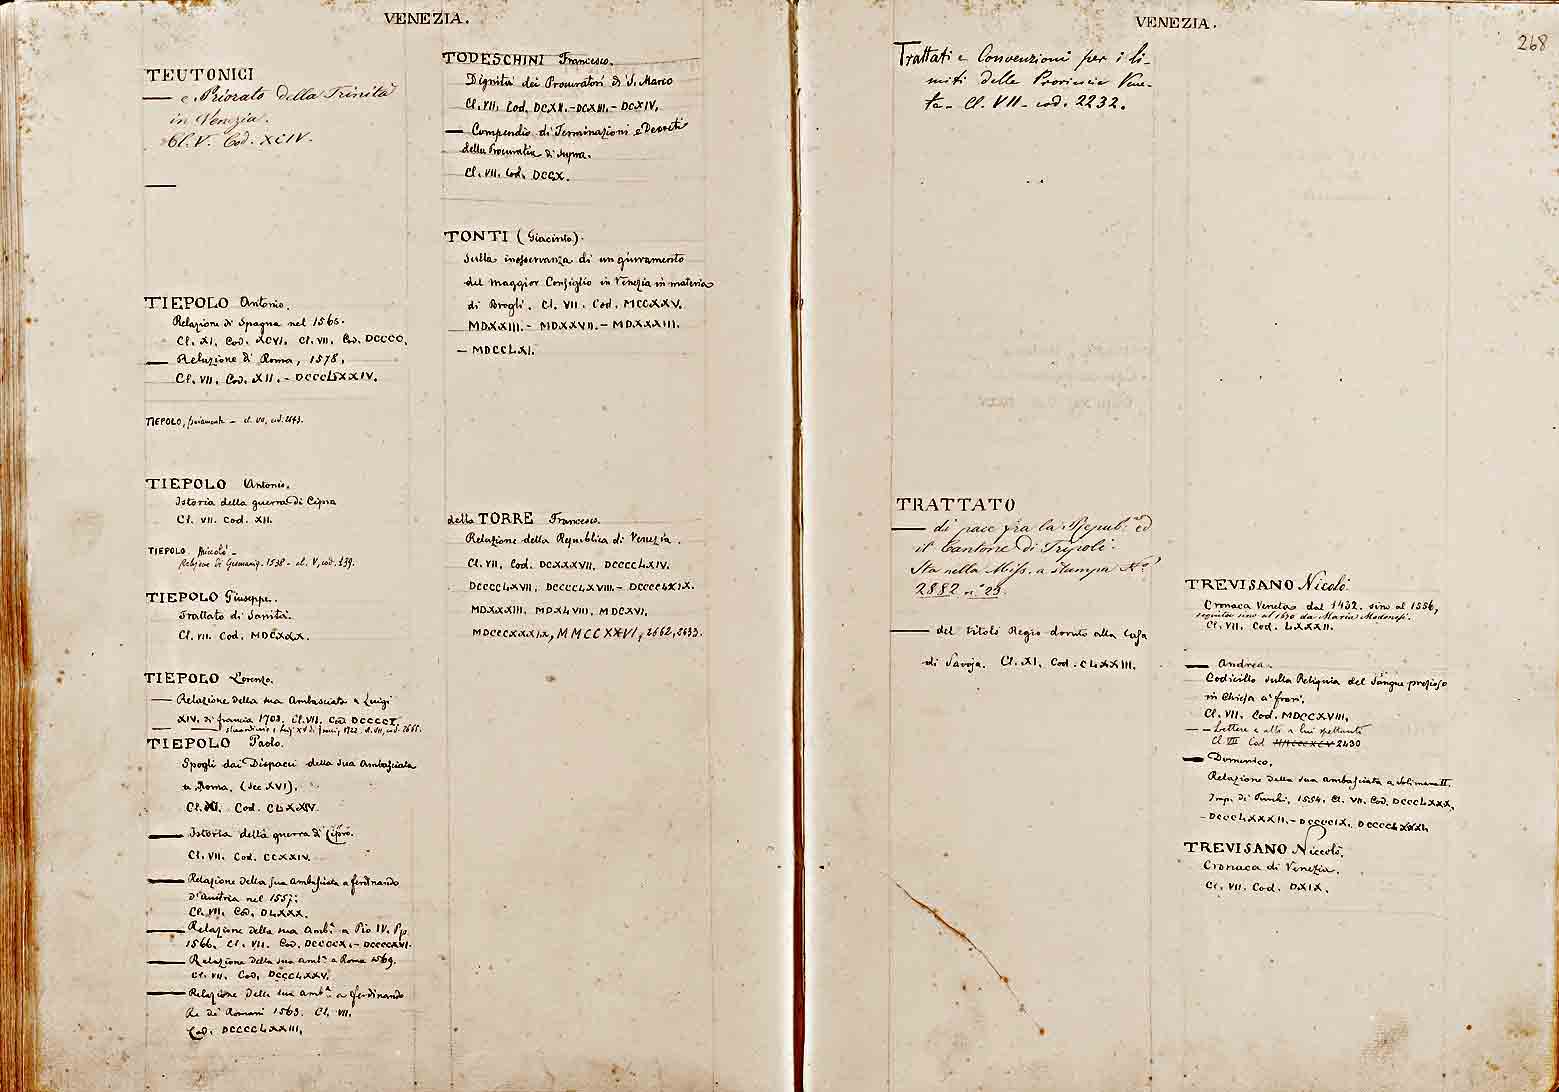 VENEZIA.
TEUTONICI
— e Priorato della Trinità
in Venezia.
Cl. V. Cod. XCIV.
—
TIEPOLO Antonio.
Relazione di Spagna nel 1566.
Cl. XI. Cod. XCVI. Cl. VII. Cod. DCCCC,
— Relazione di Roma, 1578.
Cl. VII. Cod. XII. - DCCCLXXIV.
TIEPOLO, - cl. VII, cod. 2643.
TIEPOLO Antonio.
Istoria della guerra di Cipro
Cl. VII. Cod. XII.
TIEPOLO Niccolò -
Relazione di 1538 - cl. V, cod. 139.
TIEPOLO Giuseppe.
Trattato di Sanità.
Cl. VII. Cod. MDCXXX.
TIEPOLO Lorenzo.
— Relazione della sua Ambasciata a Luigi
XIV. di francia 1703. Cl. VII. Cod. DCCCCI.
— straordinario a Luigi XV di 1722. cl. VII, cod. 2665.
TIEPOLO Paolo.
Spogli dai Dispacci della sua Ambasciata
a Roma. (Sec XVI).
Cl. XI. Cod. CLXXIV.
— Istoria della guerra di Cipro.
Cl. VII. Cod. CCXXIV.
— Relazione della sua ambasciata a ferdinando
d'austria nel 1557.
Cl. VII. Cod. DLXXX.
— Relazione della sua Amb.a a Pio IV. Pp.
1566. Cl. VII. Cod. DCCCCX. - DCCCCXVI.
— Relazione della sua amb.a a Roma 1569.
Cl. VII. Cod. DCCCLXXV.
— Relazione della sua amb.a a ferdinando
Re de Romani 1563. Cl. VII.
Cod. DCCCCLXXIII.
TODESCHINI Francesco.
Dignità dei Procuratori di S. Marco
Cl. VII. Cod. DCXII. - DCXIII. - DCXIV.
— Compendio di Terminazioni e Decreti
della Procuratia di supra.
Cl. VII. Cod. DCCX.
TONTI (Giacinto).
Sulla inosservanza di un giuramento
del Maggior Consiglio in Venezia in materia
di Brogli. Cl. VII. Cod. MCCXXV.
MDXXIII. - MDXXVII. - MDXXXIII.
- MDCCLXI.
della TORRE Francesco.
Relazione della Republica di Venezia.
Cl. VII. Cod. DCXXXVII. DCCCCLXIV.
DCCCCLXVII. DCCCCLXVIII. - DCCCCLXIX.
MDXXXIII. MDXLVIII. MDCXVI.
MDCCCXXXIX, MMCCXXVI, 2662, 2633.
VENEZIA.
268
Trattati e Convenzioni per i li-
miti delle Provincie Vene-
te - Cl. VII - cod. 2232.
TRATTATO
— di pace fra la Repub.ca ed
il Cantone di Tripoli.
Sta nella Miss. a stampa N.o
2882 n.o 23.
— del titolo Regio dovuto alla Casa
di Savoja. Cl. XI. Cod. CLXXIII.
TREVISANO Nicolò
Cronaca Veneta dal 1432. sino al 1556,
seguita sino al 1630 da Maria Modonesi.
Cl. VII. Cod. LXXXII.
— Andrea.
Codicillo sulla Reliquia del Sangue prezioso
in Chiesa a' frari.
Cl. VII. Cod. MDCCXVIII.
— Lettere e atti a lui spettanti
Cl. VII Cod 2430
— Domenico.
Relazione della sua ambasciata a Solimano II.
Imp. di Turchi, 1554. Cl. VII. Cod. DCCCLXXX,
- DCCCLXXXII. - DCCCCIX. DCCCCLXXXI.
TREVISANO Niccolò.
Cronaca di Venezia.
Cl. VII. Cod. DXIX.